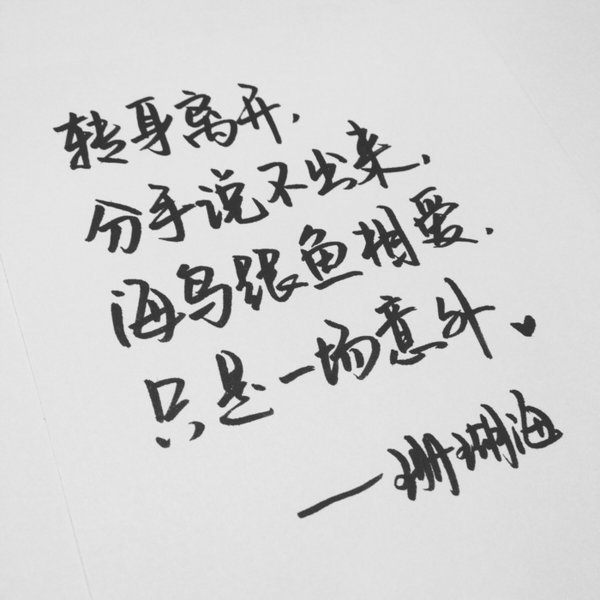 转身离开，
分手说不出来，
海鸟跟鱼相爱，
只是一场意外
——珊瑚海